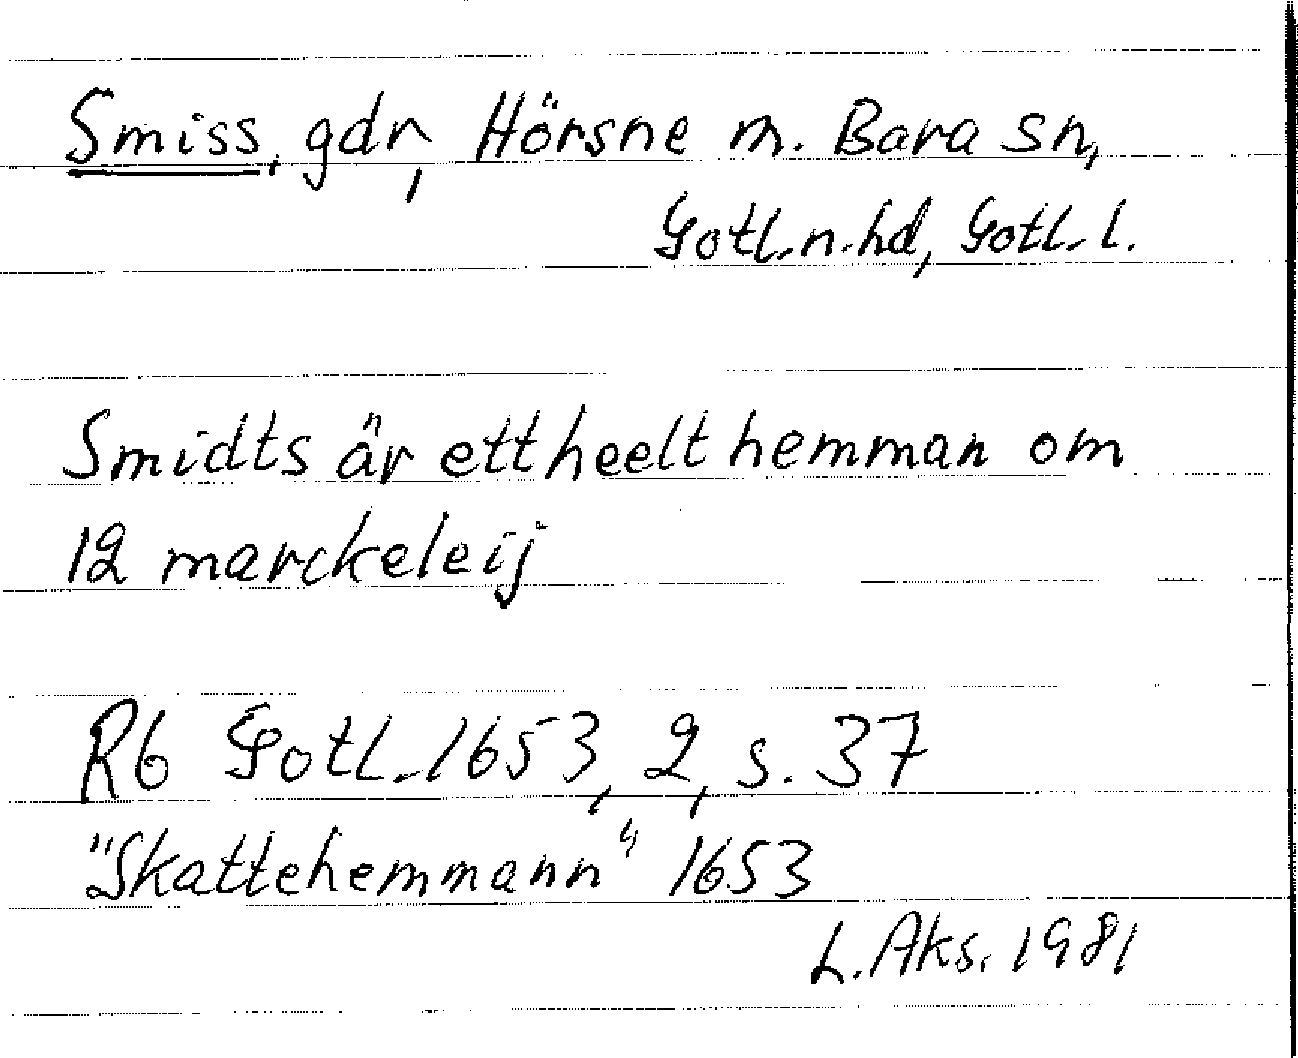 Smiss, gdr, Hörsne m. Bara sn,
Gotl. n. hd, Gotl. l.
Smidts är ett heelt hemman om
12 marckeleij
Rb Gotl. 1653, 2, s. 37
"Skattehemmann" 1653
L. Aks. 1981